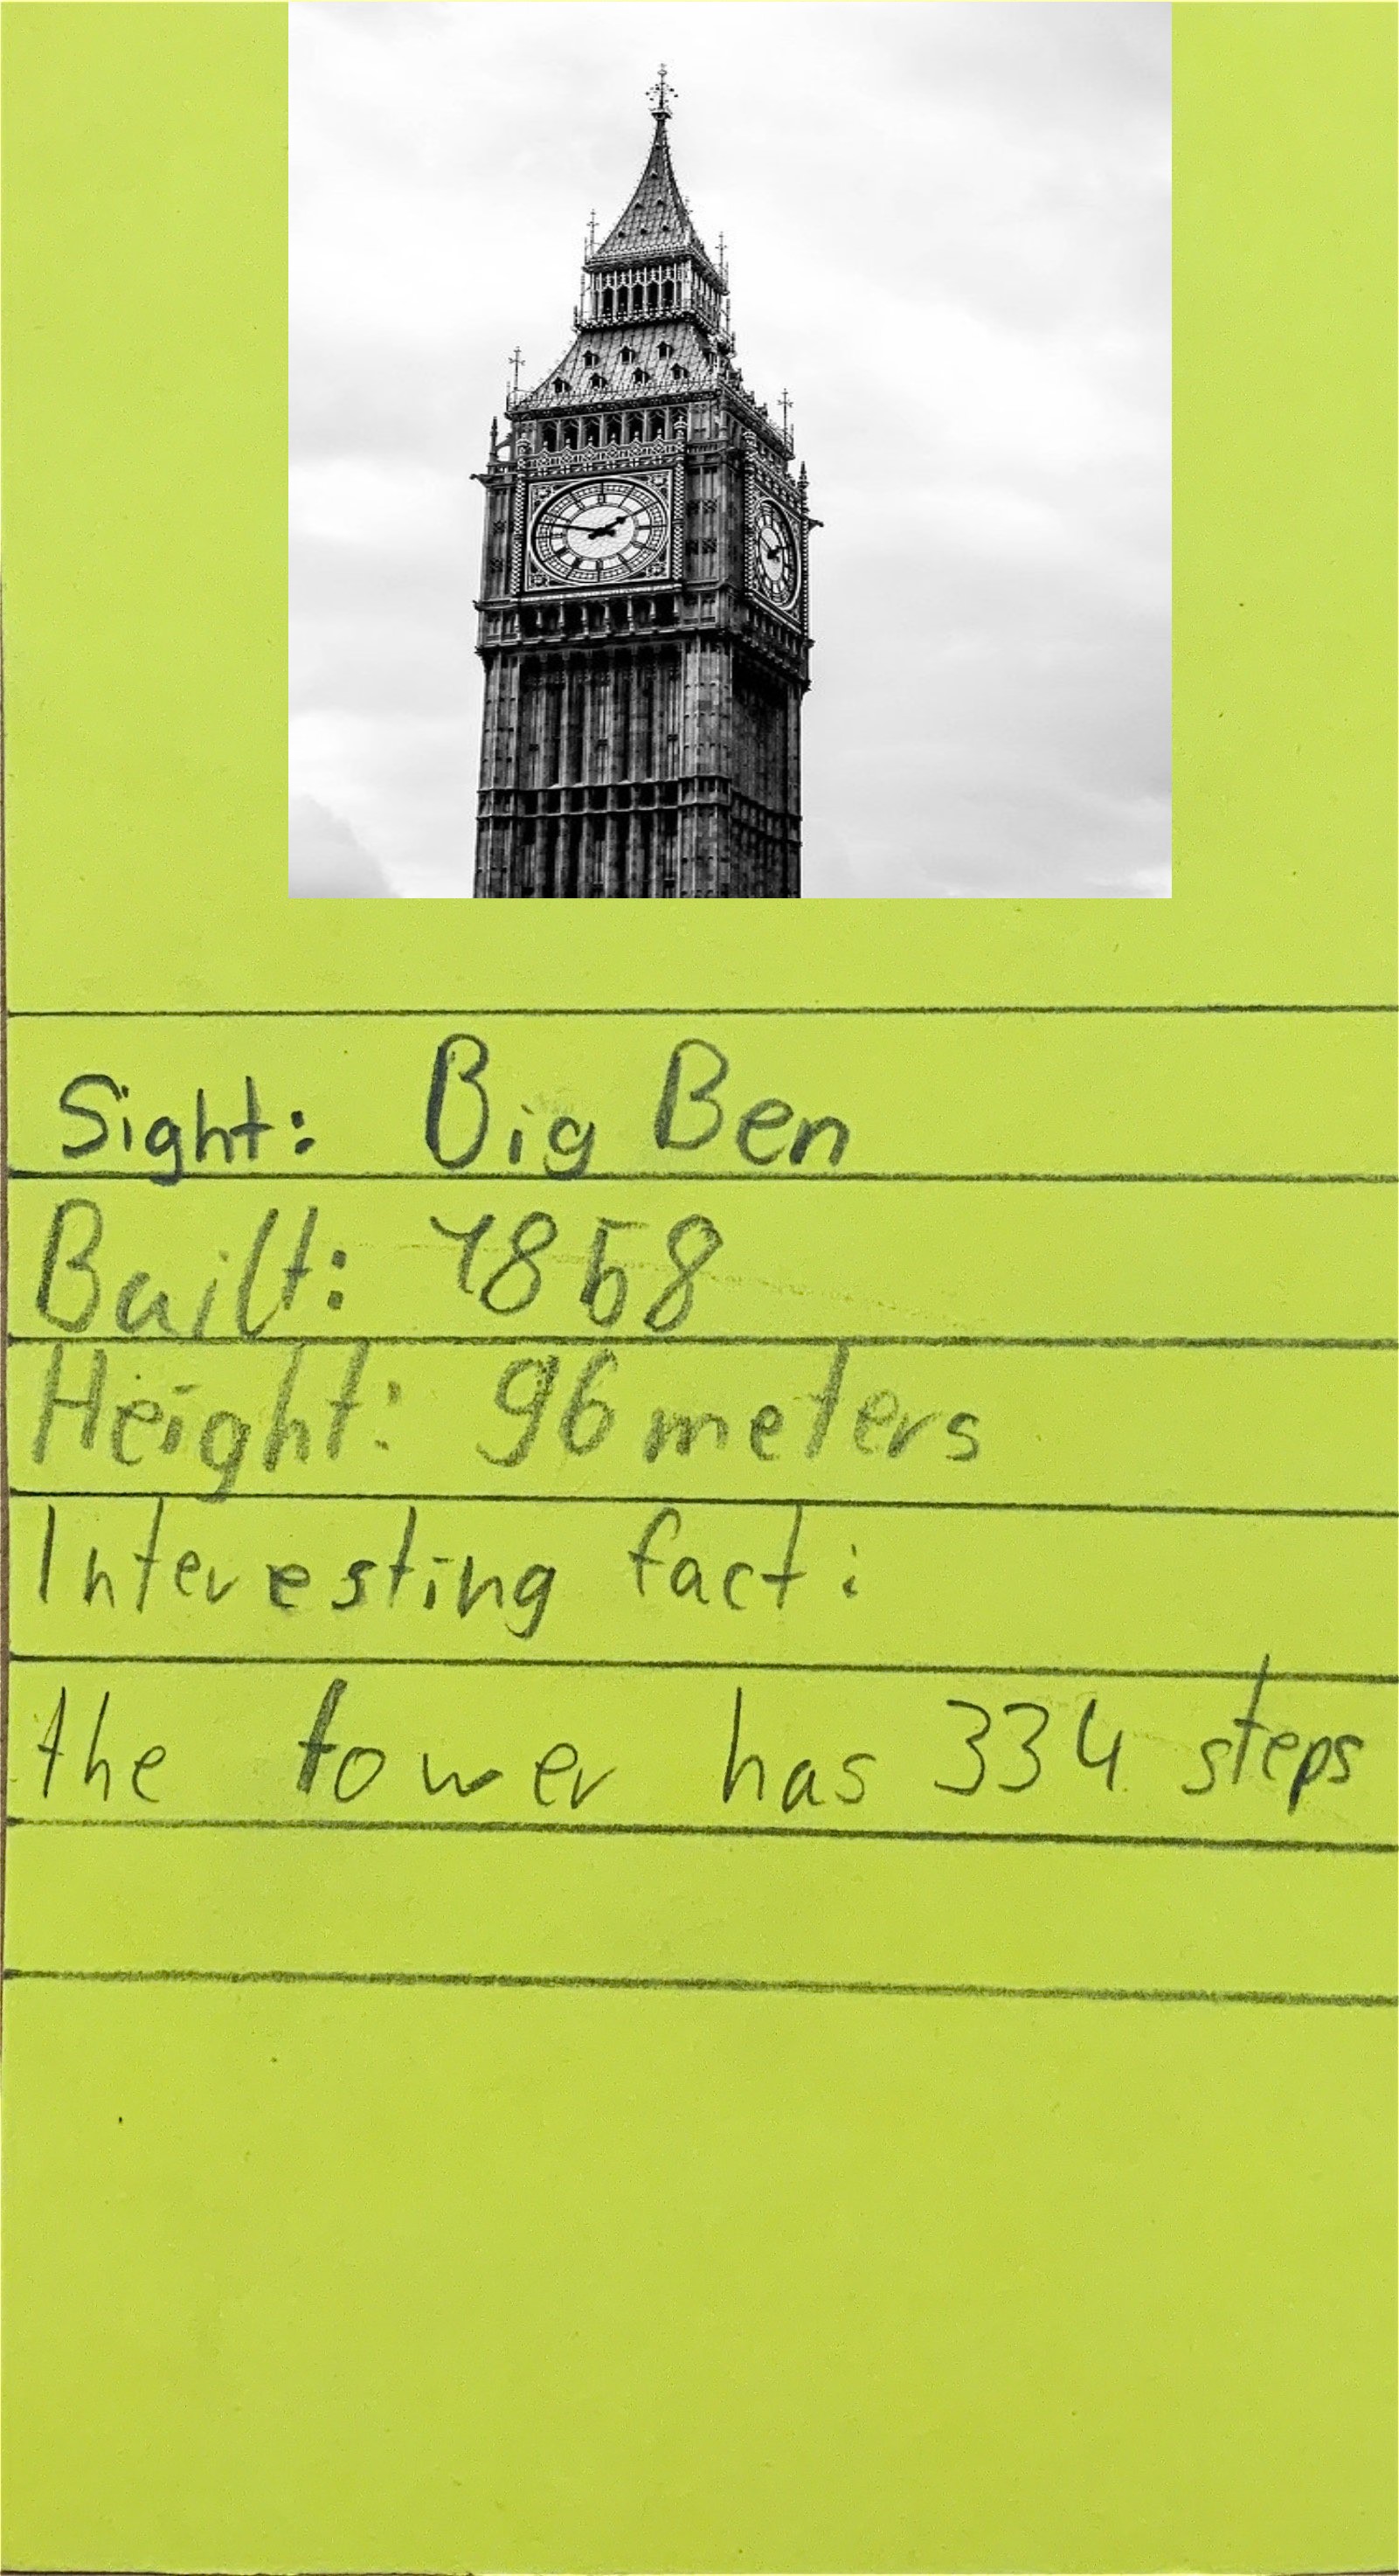 Sight: Big Ben
Built: 1858
Height: 96 meters
Interesting fact:
the tower has 334 steps